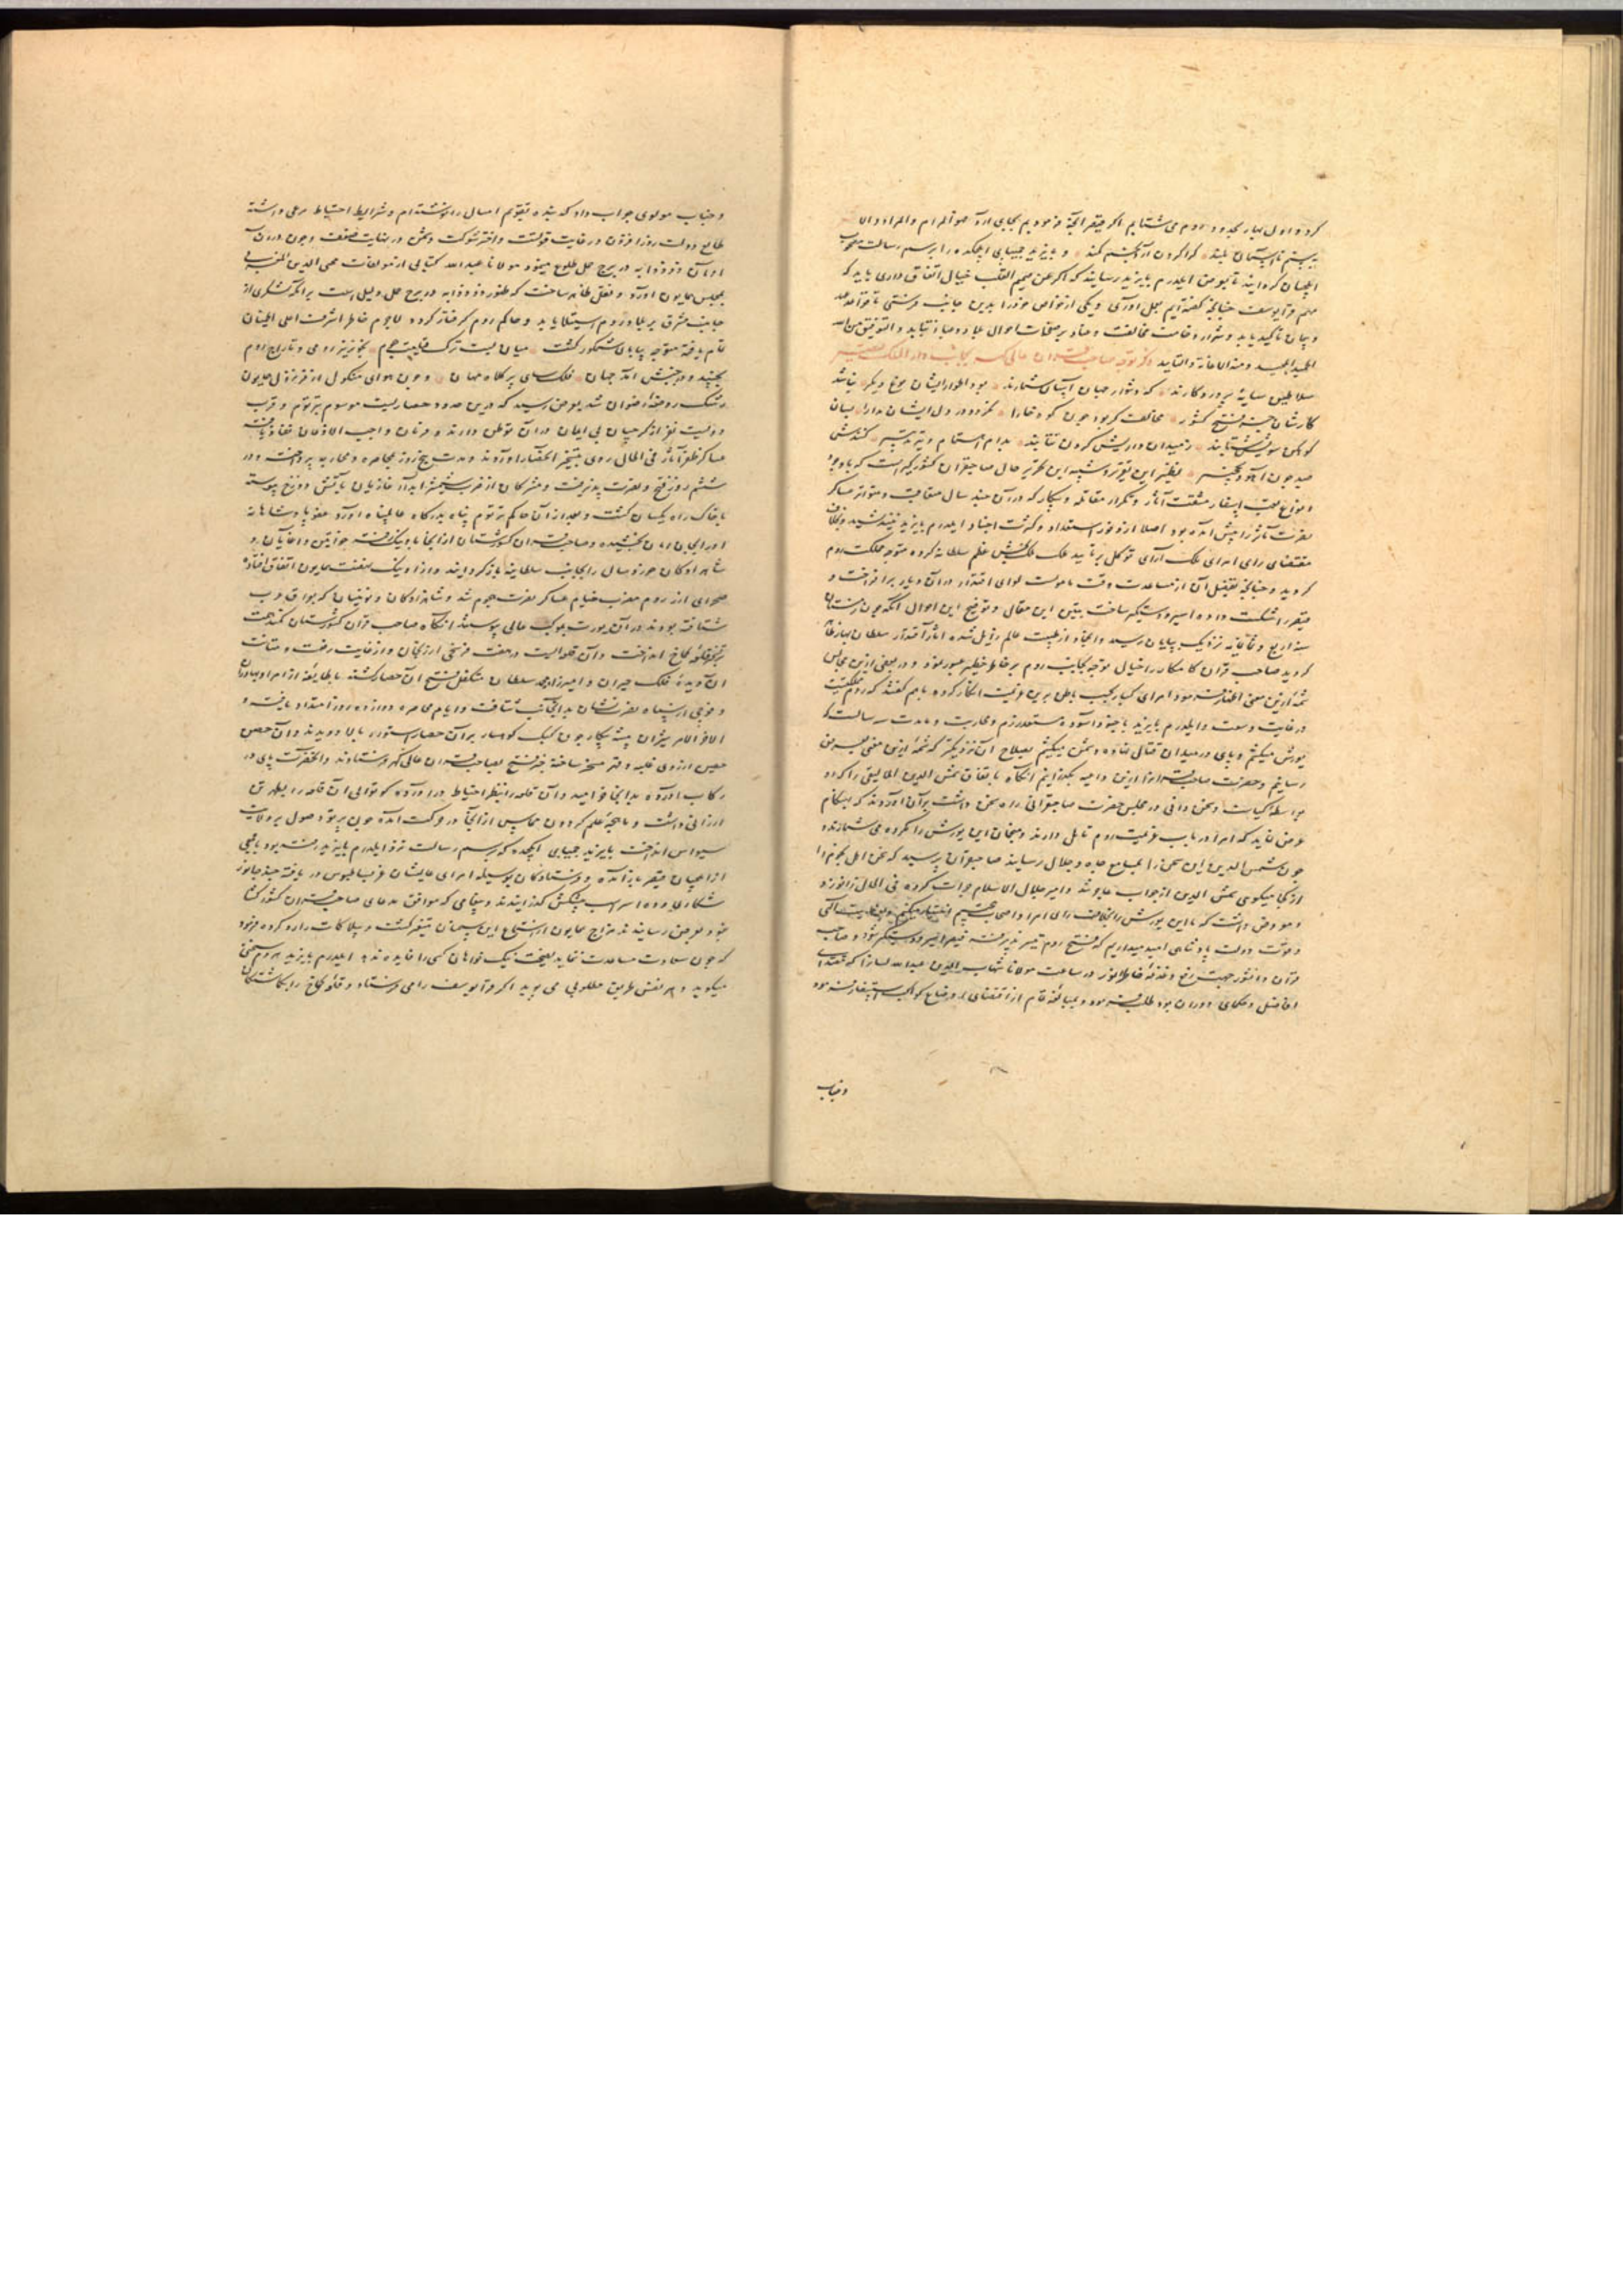 کرد و اول بهار بحدود روم می شتابیم اگر قیصر آنچه فرمودیم بجای آرد هو المرام والمراد والا
ببینیم تا اسپهان بلند کرا کردن آرد بخم کمند و بایزید چمپای ایلچکده را برسم رسالت مصحوب
ایلچیان گردانید تا بعرض ایلدرم بایزید رسانید که اگر عن صمیم القلب خیال اتفاق داری باید که
مهم قرایوسف چنانچه گفته ایم بعمل آوری و یکی از خواص خود را بدین جانب فرستی تا قواعد عهد
و پیمان تاکید یابد و شرار وخامت مخالفت و عناد بر صفحات احوال عباد و بلاد نتابد والتوفیق من الله
الحمید المجید ومنه الاعانة والتایید ذکر توجه صاحب قران عالی بجانب دار الملک قیصر
سلاطین سایهٔ پروردکارند که دشوار جهان آسان شمارند بود اطوار ایشان نوع دیگر نباشد
کارشان جز فتح کشور مخالف گر بود چون کوه خارا گذر دور دل ایشان مدارا بسان
کوهکن سویش شتابند ز میدان دارایش گردن نتابند بدام اهتمام و تیر تدبیر کنندش
صید چون آهو و نخجیر نظیر این تقریر و شبیه این تحریر حال صاحبقران کشورگیر است که باوجود
وقوع اسفار مشقت آثار و تکرار مقاتله و پیکار که در آن چند سال متعاقب و متواتر عساکر
نصرت مآثر را پیش آمده بود اصلا از وفور استعداد و کثرت اجناد ایلدرم بایزید نیندیشید و بخلاف
مقتضای رای امرای ملک آرای توکل بر تایید ملک بخش علم سلطانی کرده متوجه مملکت روم
گردید و چنانچه تفصیل آن از مساعدت وقت مامولست لوای اقتدار در آن دیار برافراخت و
قیصر را شکست داده اسیر و دستگیر ساخت تبیین این مقال و توضیح این احوال آنکه چون زمستان
سنه اربع و ثمانمایه نزدیک بپایان رسید و ایجاد از طبیعت عالم زایل شده آثار اقتدار سلطان بهار ظاهر
گردید صاحب قران کامکار را خیال توجه بجانب روم بر خاطر خطیر عبور نمود و در بعضی ازین مجالس
شمهٔ ازین معنی اظهار فرمود امرای کبار بحسب باطن برین عزیمت انکار کرده باهم گفتند که روم مملکتیست
در غایت وسعت و ایلدرم بایزید با جنود آسوده مستعد رزم و محاربت و مدت سه سالست که
یورش میکنیم و پای در میدان قتال نهاده دشمن میکشیم بصلاح آن نزدیکتر که شمهٔ ازین معنی بعرض
رسانیم و حضرت صاحبقران را ازین داعیه بگذرانیم آنگاه باتفاق شمس الدین المالیقی را که او
بواسطه کیاست و سخن دانی در مجلس حضرت صاحبقرانی راه سخن داشت برآن آوردند که بهنگام
عرض نماید که امرا در باب عزیمت روم تامل دارند و منجمان این یورش را مکروه می شمارند و
چون شمس الدین این سخن را بمسامع جاه و جلال رسانید صاحبقران پرسید که سخن اهل نجوم را
از کجا میگویی شمس الدین از جواب عاجز شد و امیر جلال الاسلام جرات کرده فی الحال زانو زد
و معروض داشت که ما این یورش را بخلاف رای امرا و اصحاب تنجیم اختیار میکنیم و بعنایت الهی
و قوت دولت پادشاهی امید میداریم که فتح روم تیسیر پذیرفته قیصر اسیر و دستگیر شود و صاحب
قران دانشور جهت رفع دغدغهٔ خاطر انور در ساعت مولانا شهاب الدین عبدالله لسان را که مقتدای
افاضل و حکمای دوران بود طلب فرمود و بمبالغه تمام از اقتضای اوضاع کواکب استفسار نمود
وجناب
و جناب مولوی جواب داد که بنده تقویم امسال را نوشته ام و شرایط احتیاط مرعی داشته
طالع دولت روز افزون در غایت قوتست و اختر شوکت دشمن در نهایت ضعف و چون در آن
اوان ذو ذوابه در برج حمل طلوع مینمود مولانا عبدالله کتابی از مولفات محی الدین المغربی
بمجلس همایون آورد و نقل ظاهر ساخت که ظهور ذوذوابه در برج حمل دلیل است بر آنکه لشکری از
جانب مشرق بر بلاد روم استیلا یابد و حاکم روم گرفتار گردد لاجرم خاطر اشرف اعلی اطمینان
تام یافته متوجه بپای لشکر گشت میان بست ترک بخونریز رومی و تاراج روم
بجنبید و در جنبش آمد جهان فلک سای پر کلاه مهان و چون هوای منکول از فر نزول همایون
رشک روضهٔ رضوان شد بعرض رسید که درین حدود حصاریست موسوم بترتوم و قرب
دویست نفر از گرجیان بی ایمان در آن توطن دارند و فرمان واجب الاذعان نفاذ یافته
عساکر ظفر آثار فی الحال روی بتسخیر آن حصار آوردند و مدت پنج روز بمحاصره و محاربه پرداختند و در
ششم روز فتح و نصرت پذیرفت و مشرکان از ضرب شمشیر آبدار غازیان بآتش دوزخ پیوسته
با خاک راه یکسان گشت و بعد از آن حاکم ترتوم پناه بدرگاه عالم پناه آورد عفو پادشاهانه
اورا بجان امان بخشیده و صاحبقران کشورستان از آنجا باونیک رفته خواتین و آغایان و
شاهزادگان خورد سال را بجانب سلطانیه بازگردانید و از اونیک نهضت همایون اتفاق افتاد
صحرای ارز روم مضرب خیام عساکر نصرت هجوم شد و شاهزادگان و نویینان که بواقعه
شتافته بودند در آن یورت بموکب عالی پیوستند آنگاه صاحب قران کشورستان کمند همت
بر تسخیر قلعهٔ کماخ انداخت و آن قلعه ایست در هفت فرسخی ارزنجان و از غایت رفعت و متانت
آن دیدهٔ فلک حیران و امیرزاده محمد سلطان متکفل فتح آن حصار گشته با طایفه از امرا و بهادران
و فوجی از سپاه نصرت نشان بدانجانب شتافت و ایام محاصره دوازده روز امتداد یافته و
آخر الامر میژان پیشه پیکار چون کبک کوهسار برآن حصار استوار بالا دویدند و آن حصن
حصین از روی غلبه و قهر مسخر ساخته خبر فتح بصاحبقران عالی گهر فرستادند و آنحضرت پای در
رکاب آورده بدانجا خرامید و آن قلعه را بنظر احتیاط در آورده کوتوالی آن قلعه را بطهرتن
ارزانی داشت و ماهچهٔ علم گردون مماس از آنجا در حرکت آمده چون پرتو وصول بر ولایت
سیواس انداخت بایزید چمپای ایلچکده که برسم رسالت نزد ایلدرم بایزید رفته بود با بعضی
از ایلچیان قیصر باز آمده و فرستادگان بوسیله امرای عالیشان عز بساطبوس دریافته چند جانور
شکاری و ده اسب پیشکش گذرانیدند و پیغامی که موافق مدعای صاحبقران کشور گشا
نبود بعرض رسانیدند مزاج همایون از استماع این سخنان متغیر گشت و بپلاکات را رد کرده فرمود
که چون سعادت مساعدت ننماید نصیحت نیک خواهان کسی را فایده ندهد ایلدرم بایزید هر دم سخنی
میگوید و هر نفس طریق مطلوبی می پوید اگر قرایوسف را می فرستاد و قلعهٔ کماخ را بگماشتگان